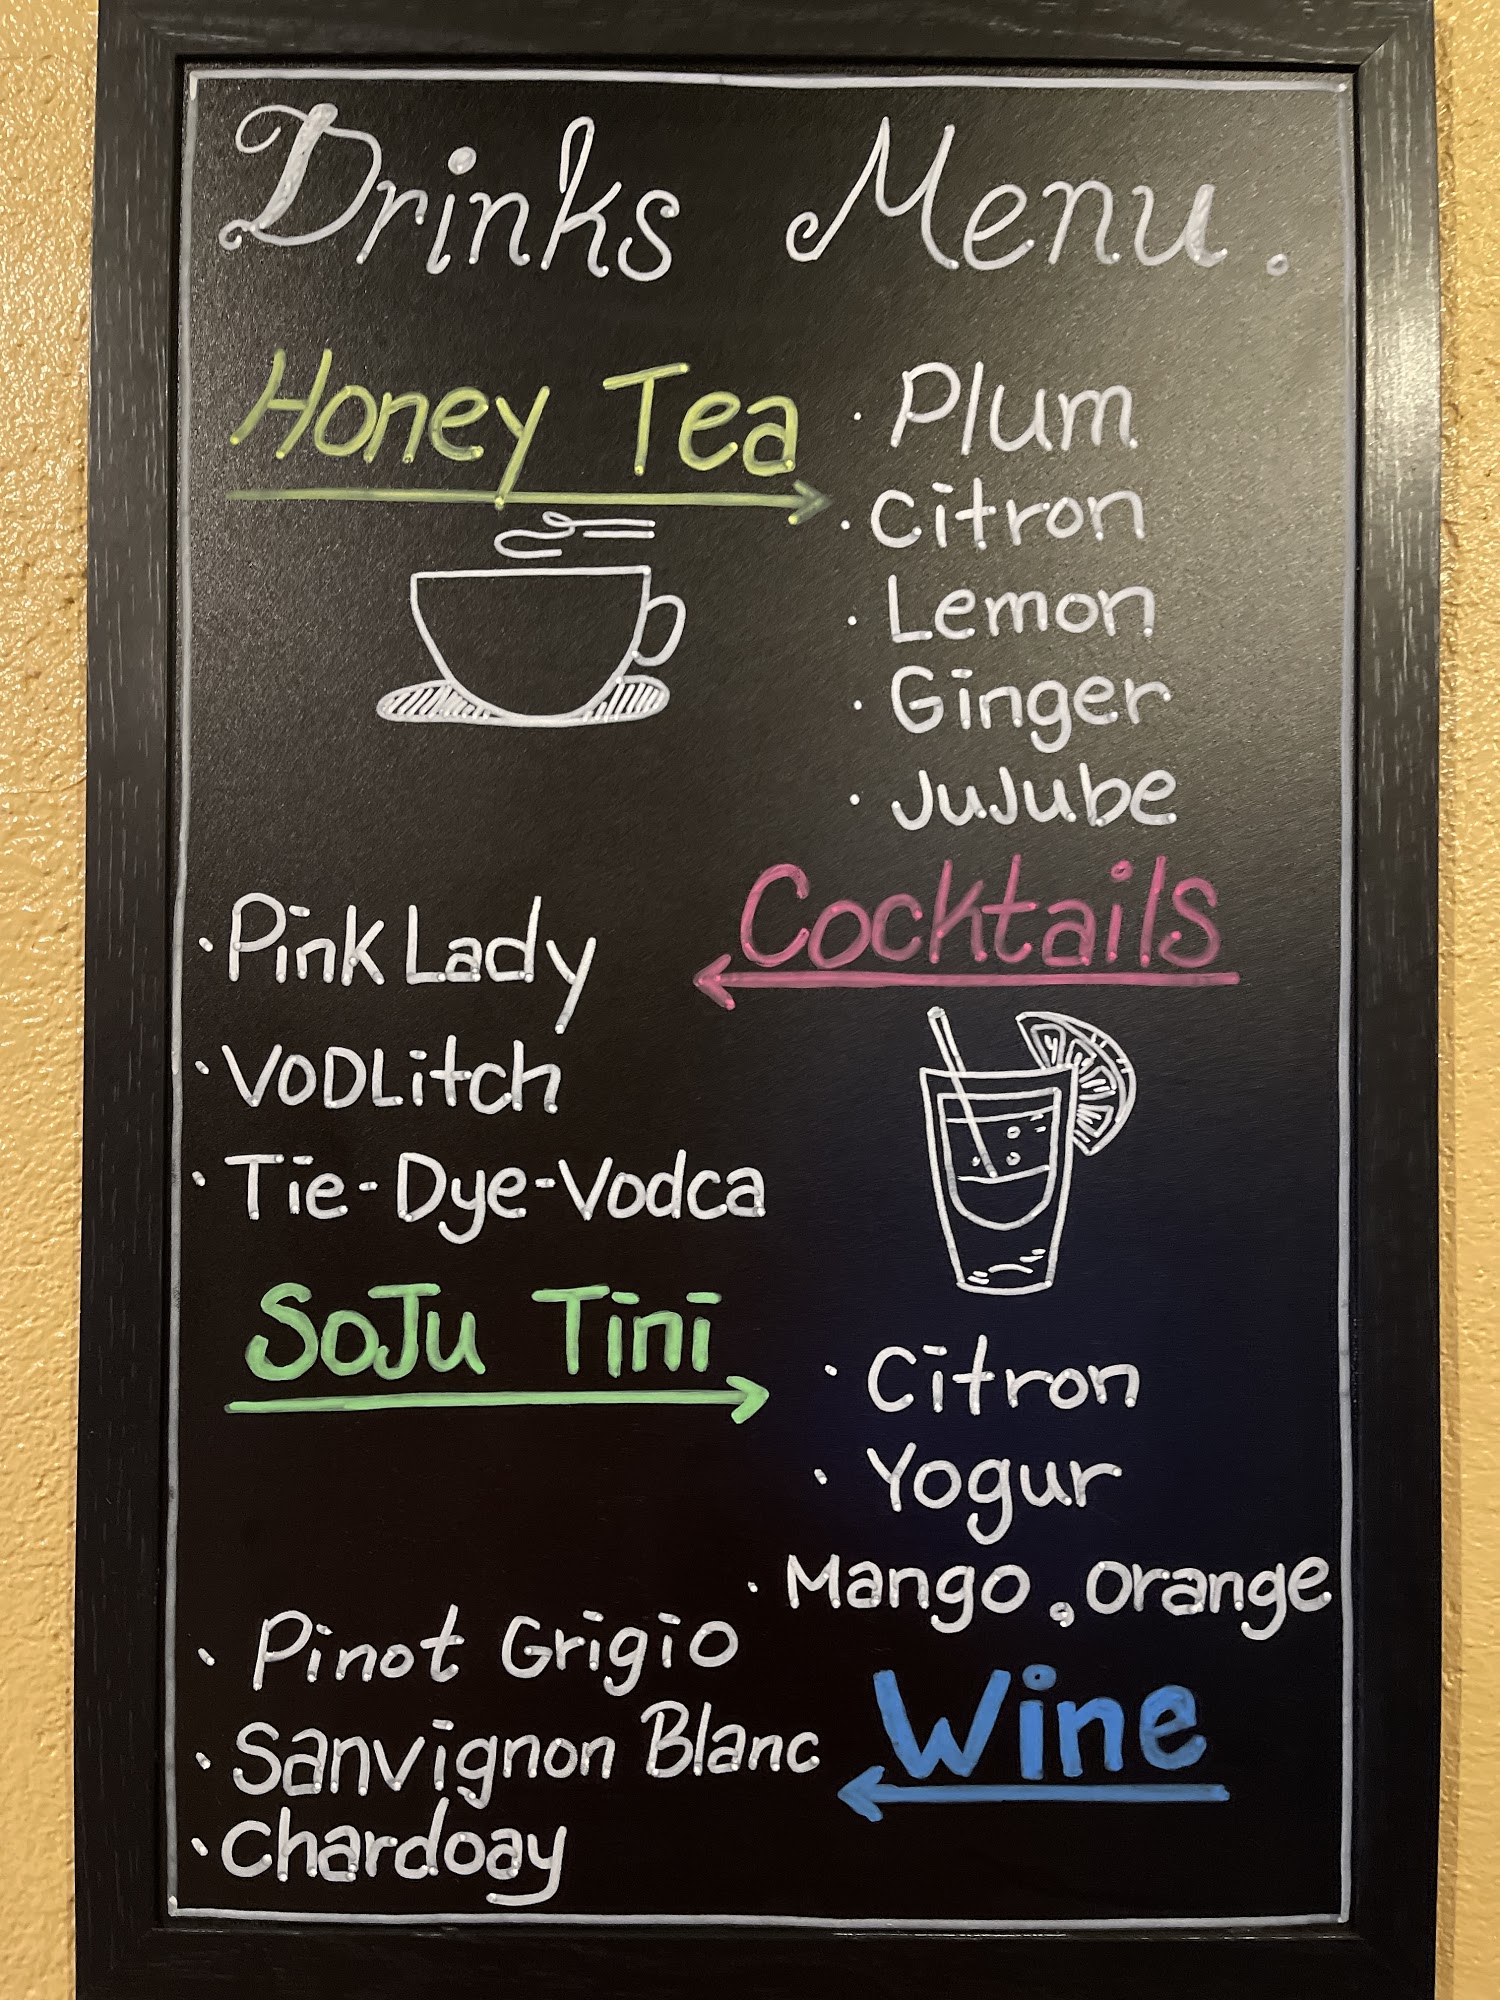 Drinks Menu.
Honey Tea
· Plum
· Citron
· Lemon
· Ginger
· JuJube
Cocktails
· Pink Lady
· VODLitch
· Tie-Dye-Vodca
SoJu Tini
· Citron
· Yogur
· Mango, Orange
Wine
· Pinot Grigio
· Sanvignon Blanc
· Chardoay